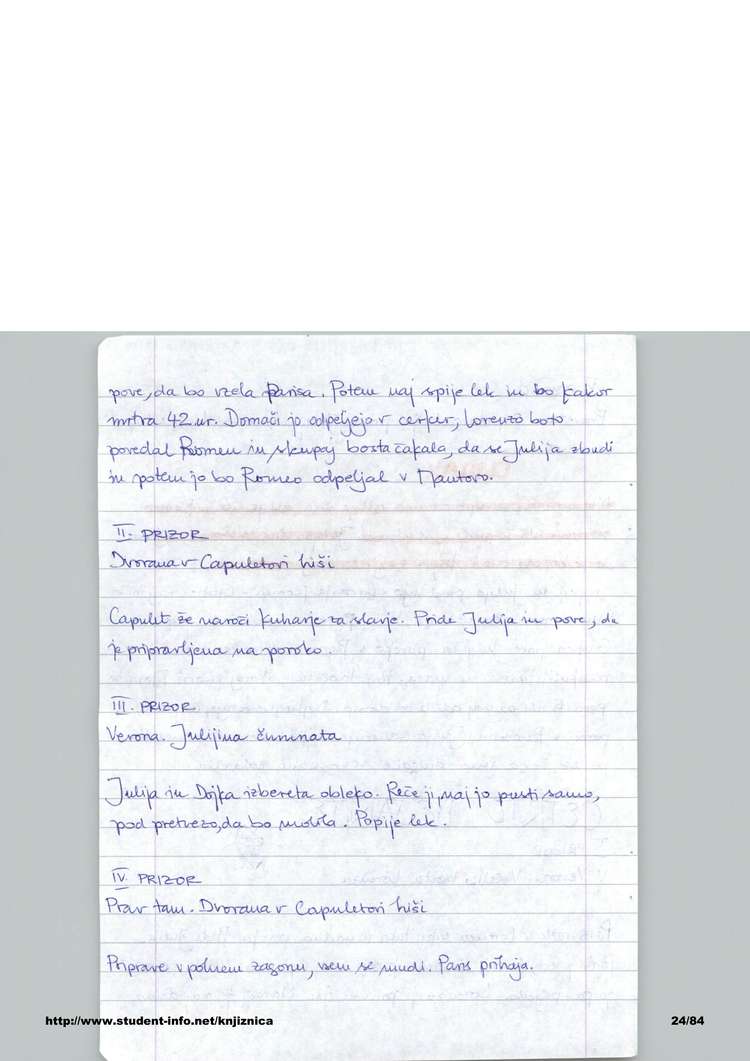 pove, da bo vzela Parisa. Potem naj spije lek in bo kakor
mrtva 42 ur. Domači jo odpeljejo v cerkev, Lorenzo bo to
povedal Romeu in skupaj bosta čakala, da se Julija zbudi
in potem jo bo Romeo odpeljal v Mantovo.
II. PRIZOR
Dvorana v Capuletovi hiši
Capulet že naroči kuharje za slavje. Pride Julija in pove, da
je pripravljena na poroko.
III. PRIZOR
Verona. Julijina čumnata
Julija in Dojka izbereta obleko. Reče ji, naj jo pusti samo,
pod pretvezo, da bo molila. Popije lek.
IV. PRIZOR
Prav tam. Dvorana v Capuletovi hiši
Priprave v polnem zagonu, vsem se mudi. Paris prihaja.
http://www.student-info.net/knjiznica 24/84